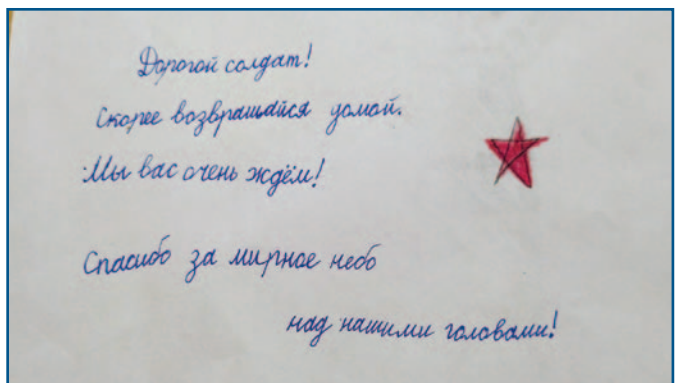 Дорогой солдат!
Скорее возвращайся домой.
Мы вас очень ждём!
Спасибо за мирное небо
над нашими головами!